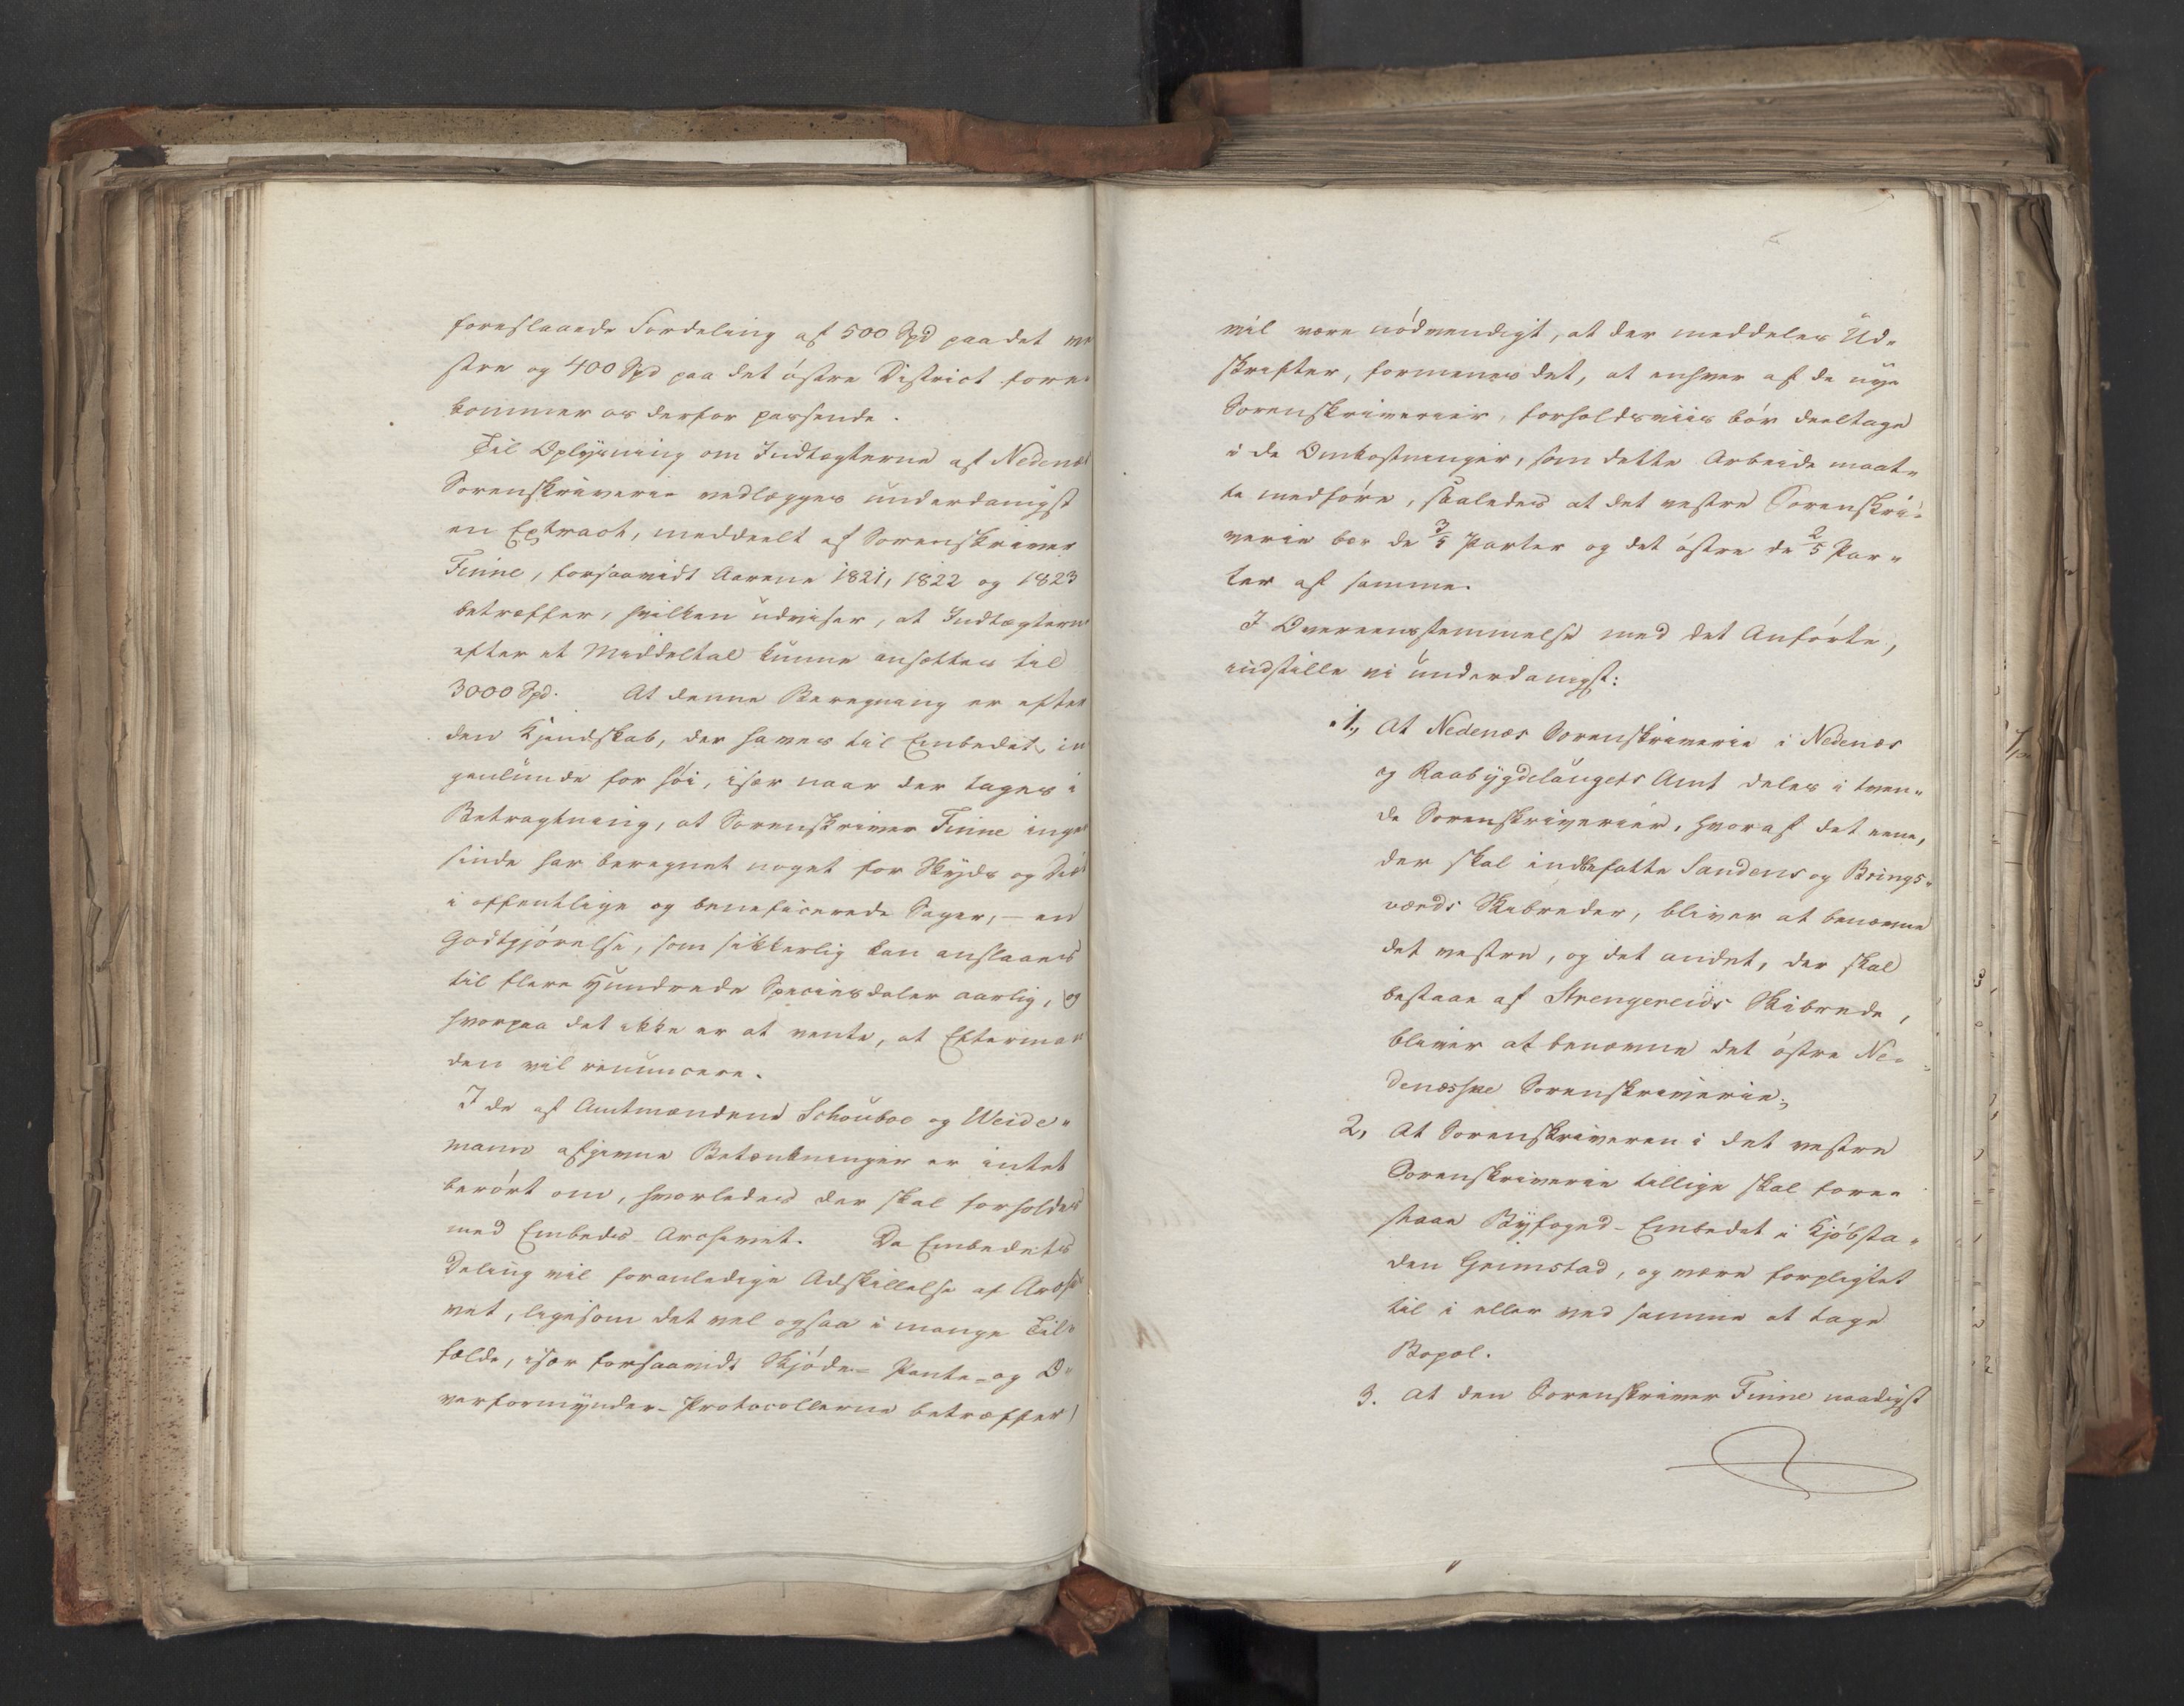 foreslaaede Fordeling af 500 Spd paa det ve
stre og 400 Spd paa det östre District fore-
kommer os derfor passende.
Til Oplysning om Indtægterne af Nedenæs
Sorenskriverie vedlægges underdanigst
en Extract, meddeelt af Sorenskriver
Finne, forsaavidt Aarene 1821, 1822 og 1823
betræffer, hvilken udviser, at Indtægterne
efter et Middeltal kunne ansættes til
3000 Spd. At denne Beregning er efter
den Kjendskab, der haves til Embedet, in
genlunde for höi, især naar der tages i
Betragtning, at Sorenskriver Finne ingen
sinde har beregnet noget for Skyds og Diæt
i offentlige og beneficerede Sager, – en
Godtgjörelse, som sikkerlig kan anslaaes
til flere Hundrede Speciesdaler aarlig, og
hvorpaa det ikke er at vente, at Efterman
den vil renuncere.
I de af Amtmændene Schouboe og Weide-
mann afgivne Betænkninger er intet
berört om, hvorledes der skal forholdes
med Embeds-Archivet. Da Embedets
Deling vil foranledige Adskillelse af Archi
vet, ligesom det vel ogsaa i mange Til-
fælde, især forsaavidt Skjöde- Pante- og O-
verformynder-Protocollerne betræffer,
vil være nödvendigt, at der meddeles Ud-
skrifter, formenes det, at enhver af de nye
Sorenskriverier, forholdsviis bör deeltage
i de Omkostninger, som dette Arbeide maat-
te medföre, saaledes at det vestre Sorenskri-
verie bær de 3/5 Parter og det östre de 2/5 Par-
ter af samme.
I Overeensstemmelse med det Anförte,
indstille vi underdanigst:
1, At Nedenæs Sorenskriverie i Nedenæs
og Raabygdelaugets Amt deles i tven-
de Sorenskriverier, hvoraf det eene,
der skal indbefatte Sandens og Brings-
værds Skibreder, bliver at benævne
det vestre, og det andet, der skal
bestaae af Strengereids Skibrede,
bliver at benævne det östre Ne-
denæsske Sorenskriverie;
2, At Sorenskriveren i det vestre
Sorenskriverie tillige skal fore-
staae Byfoged-Embedet i Kjöbsta-
den Grimstad, og være forpligtet
til i eller ved samme at tage
Bopæl.
3. At den Sorenskriver Finne naadigst